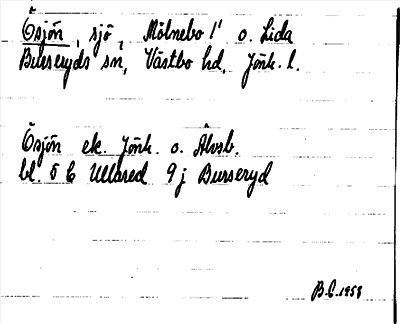 Ösjön, sjö, Mölnebo 1' o. Lida
Burseryds sn, Västbo hd, Jönk. l.
Ösjön ek. Jönk. o. Älvsb.
bl. 5 C Ullared 9 j Burseryd
B.E. 1958